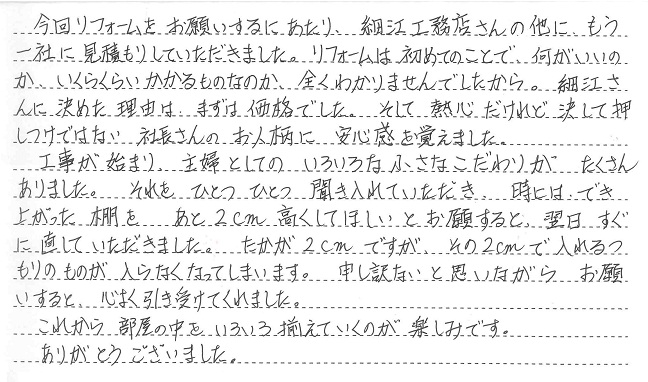 今回リフォームをお願いするにあたり、細江工務店さんの他にもう
一社に見積もりしていただきました。リフォームは初めてのことで何がいいの
か、いくらくらいかかるものなのか、全くわかりませんでしたから。細江さ
んに決めた理由は、まずは価格でした。そして熱心だけれど決して押
しつけではない社長さんのお人柄に安心感を覚えました。
工事が始まり、主婦としてのいろいろな小さなこだわりがたくさん
ありました。それをひとつひとつ聞き入れていただき、時にはでき
上がった棚をあと2cm高くしてほしいとお願すると、翌日すぐ
に直していただきました。たかが2cmですが、その2cmで入れるつ
もりのものが入らなくなってしまいます。申し訳ないと思いながらお願
いすると、心よく引き受けてくれました。
これから部屋の中をいろいろ揃えていくのが楽しみです。
ありがとうございました。